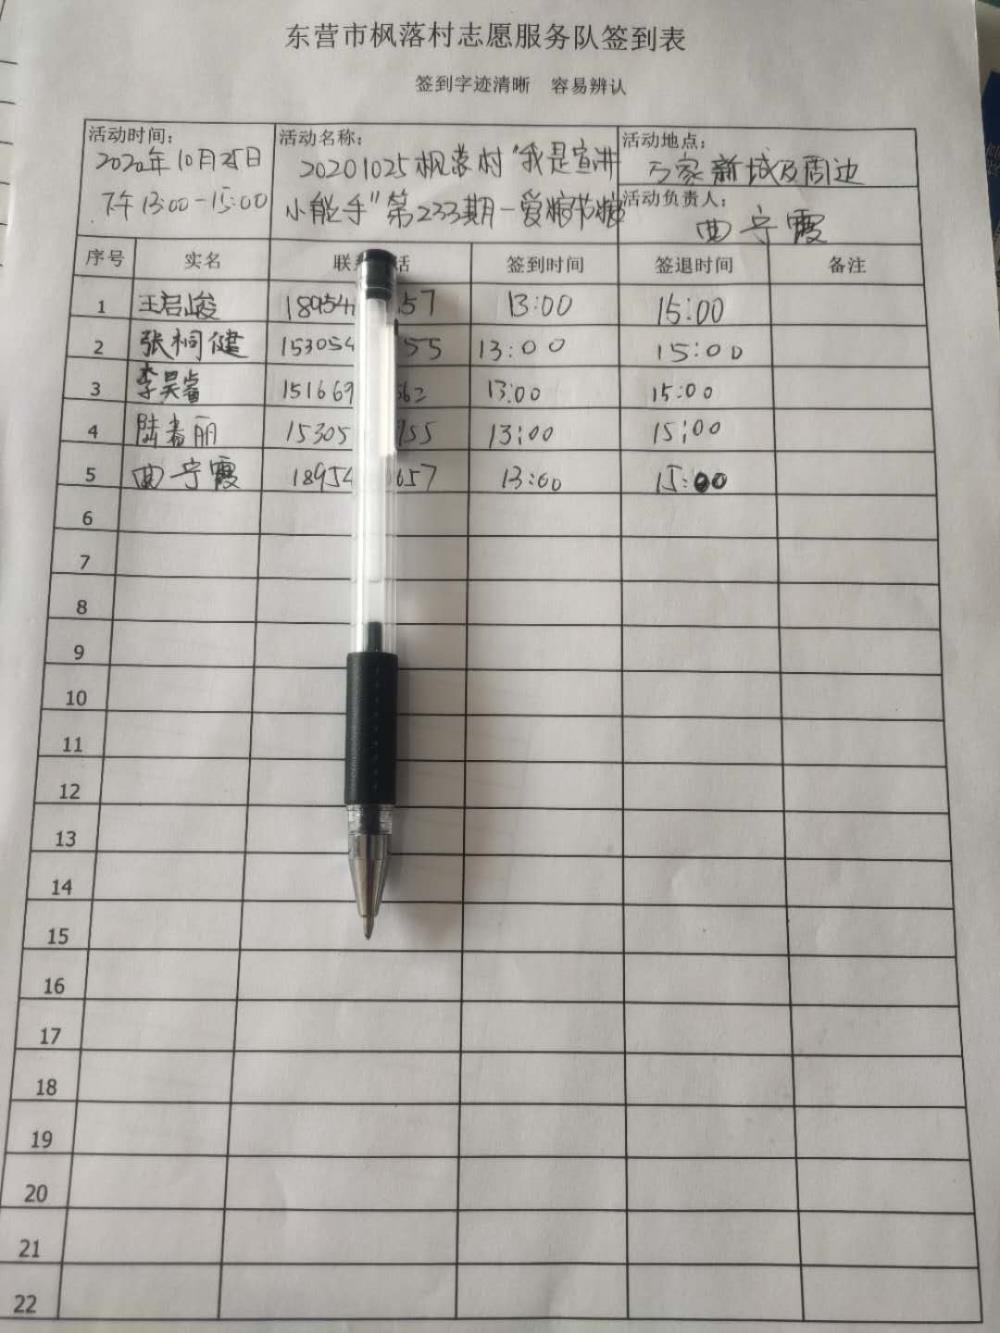 东营市枫落村志愿服务队签到表
签到字迹清晰 容易辨认
活动时间：
2020年10月25日
下午13:00-15:00
活动名称：
20201025枫落村"我是宣讲
小能手"第233期-爱粮节粮
活动地点：
万家新城及周边
活动负责人：
曲宁霞
序号 实名 联 话 签到时间 签退时间 备注
1 王启峻 18954 57 13:00 15:00
2 张桐健 153054 55 13:00 15:00
3 李昊睿 151669 62 13:00 15:00
4 陆春丽 15305 955 13:00 15:00
5 曲宁霞 18954 657 13:00 15:00
6
7
8
9
10
11
12
13
14
15
16
17
18
19
20
21
22